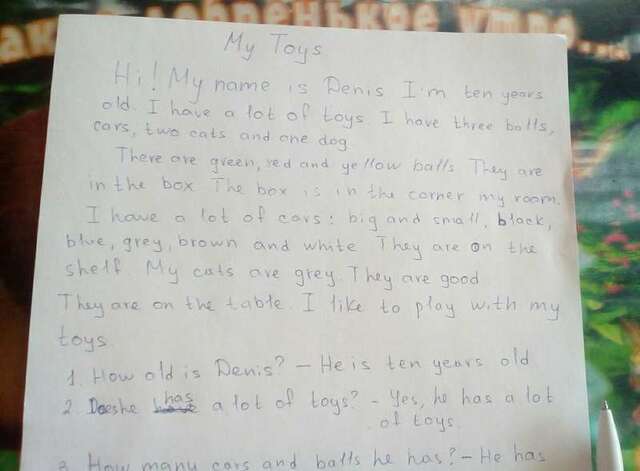 добренькое утро...
My Toys
Hi! My name is Denis I'm ten years
old. I have a lot of toys I have three balls,
cars, two cats and one dog
There are green, red and yellow balls They are
in the box The box is in the corner my room.
I have a lot of cars: big and small, black,
blue, grey, brown and white They are on the
shelf. My cats are grey. They are good
They are on the table. I like to play with my
toys
1. How old is Denis? – He is ten years old
2. Does he has a lot of toys? – Yes, he has a lot
of toys.
3 How many cars and balls he has? – He has